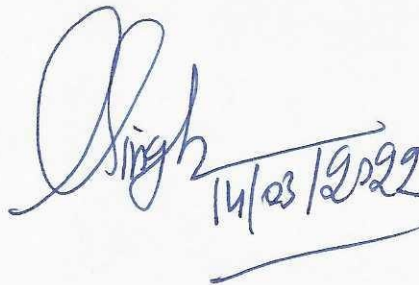 Singh
14/03/2022